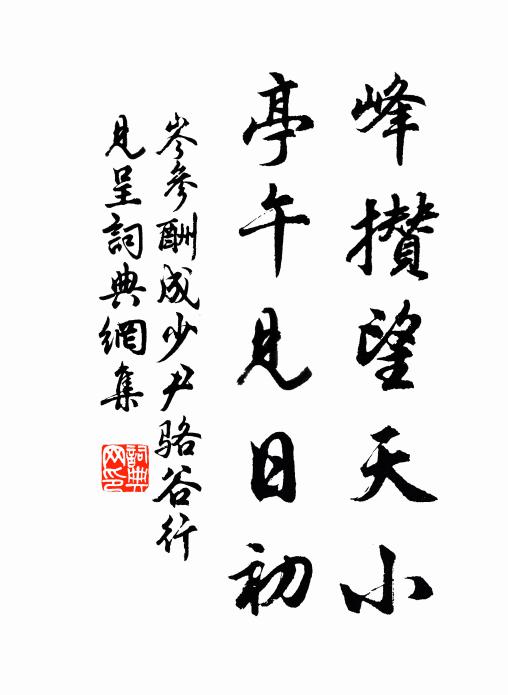 峰攢望天小
亭午見日初
岑參酬成少尹骆谷行
見呈詞典網集
詞典
网印